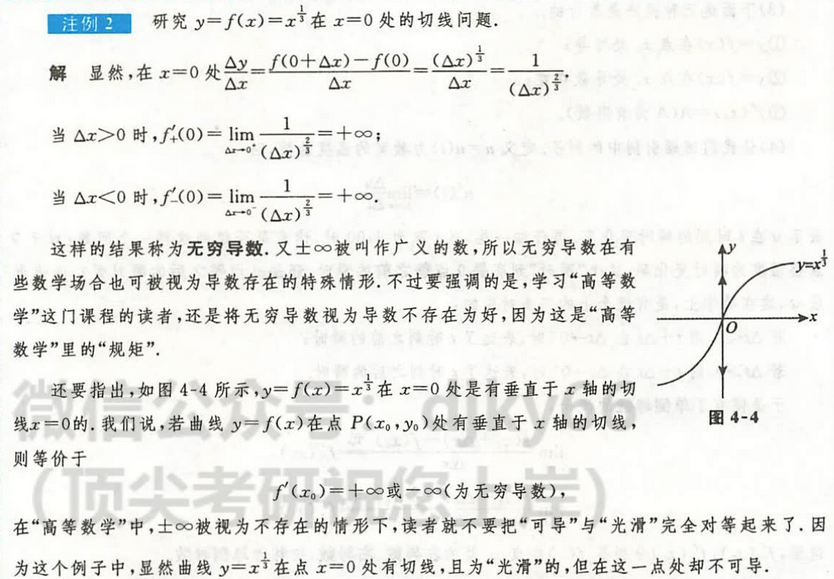 注例 2 研究 y=f(x)=x^{1/3} 在 x=0 处的切线问题.
解 显然,在 x=0 处 Δy/Δx = (f(0+Δx)-f(0))/Δx = (Δx)^{1/3}/Δx = 1/(Δx)^{2/3}.
当 Δx>0 时,f′₊(0)=lim_{Δx→0⁺} 1/(Δx)^{2/3}=+∞;
当 Δx<0 时,f′₋(0)=lim_{Δx→0⁻} 1/(Δx)^{2/3}=+∞.
这样的结果称为无穷导数.又±∞被叫作广义的数,所以无穷导数在有
些数学场合也可被视为导数存在的特殊情形.不过要强调的是,学习“高等数
学”这门课程的读者,还是将无穷导数视为导数不存在为好,因为这是“高等
数学”里的“规矩”.
y
y=x^{1/3}
O
x
图 4-4
还要指出,如图 4-4 所示,y=f(x)=x^{1/3} 在 x=0 处是有垂直于 x 轴的切
线x=0的.我们说,若曲线 y=f(x)在点 P(x₀,y₀)处有垂直于 x 轴的切线,
则等价于
f′(x₀)=+∞或-∞(为无穷导数),
在“高等数学”中,±∞被视为不存在的情形下,读者就不要把“可导”与“光滑”完全对等起来了.因
为这个例子中,显然曲线 y=x^{1/3}在点 x=0 处有切线,且为“光滑”的,但在这一点处却不可导.
微信公众号: djky66
(顶尖考研祝您上岸)